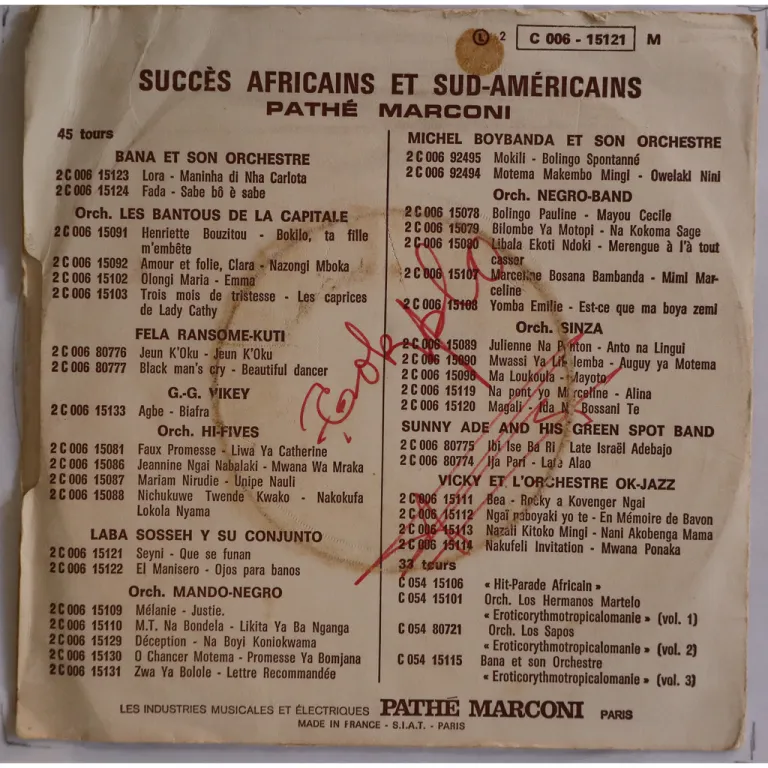 Ⓛ 2 C 006 - 15121 M
SUCCÈS AFRICAINS ET SUD-AMÉRICAINS
PATHÉ MARCONI
45 tours
BANA ET SON ORCHESTRE
2 C 006 15123 Lora - Maninha di Nha Carlota
2 C 006 15124 Fada - Sabe bô è sabe
Orch. LES BANTOUS DE LA CAPITALE
2 C 006 15091 Henriette Bouzitou - Bokilo, ta fille
m'embête
2 C 006 15092 Amour et folie, Clara - Nazongi Mboka
2 C 006 15102 Olongi Maria - Emma
2 C 006 15103 Trois mois de tristesse - Les caprices
de Lady Cathy
FELA RANSOME-KUTI
2 C 006 80776 Jeun K'Oku - Jeun K'Oku
2 C 006 80777 Black man's cry - Beautiful dancer
G.-G. VIKEY
2 C 006 15133 Agbe - Biafra
Orch. HI-FIVES
2 C 006 15081 Faux Promesse - Liwa Ya Catherine
2 C 006 15086 Jeannine Ngai Nabalaki - Mwana Wa Mraka
2 C 006 15087 Mariam Nirudie - Unipe Nauli
2 C 006 15088 Nichukuwe Twende Kwako - Nakokufa
Lokola Nyama
LABA SOSSEH Y SU CONJUNTO
2 C 006 15121 Seyni - Que se funan
2 C 006 15122 El Manisero - Ojos para banos
Orch. MANDO-NEGRO
2 C 006 15109 Mélanie - Justie.
2 C 006 15110 M.T. Na Bondela - Likita Ya Ba Nganga
2 C 006 15129 Déception - Na Boyi Koniokwama
2 C 006 15130 O Chancer Motema - Promesse Ya Bomjana
2 C 006 15131 Zwa Ya Bolole - Lettre Recommandée
MICHEL BOYBANDA ET SON ORCHESTRE
2 C 006 92495 Mokili - Bolingo Spontanné
2 C 006 92494 Motema Makembo Mingi - Owelaki Nini
Orch. NEGRO-BAND
2 C 006 15078 Bolingo Pauline - Mayou Cecile
2 C 006 15079 Bilombe Ya Motopi - Na Kokoma Sage
2 C 006 15080 Libala Ekoti Ndoki - Merengue à l'à tout
casser
2 C 006 15107 Marceline Bosana Bambanda - Mimi Mar-
celine
2 C 006 15108 Yomba Emilie - Est-ce que ma boya zemi
Orch. SINZA
2 C 006 15089 Julienne Na - Anto na Lingui
2 C 006 15090 Mwassi Ya - Auguy ya Motema
2 C 006 15096 Ma Loukoula - Mayoto
2 C 006 15119 Na pont yo Marceline - Alina
2 C 006 15120 Magali - Bossanl Te
SUNNY ADE AND HIS GREEN SPOT BAND
2 C 006 80775 Ibi Ise Ba Ri - Late Israël Adebajo
2 C 006 80774 Ija Pari - Lala Alao
VICKY ET L'ORCHESTRE OK-JAZZ
2 C 006 15111 Bea - Rocky a Kovenger Ngai
2 C 006 15112 Ngaï naboyaki yo te - En Mémoire de Bavon
2 C 006 15113 Nazali Kitoko Mingi - Nani Akobenga Mama
2 C 006 15114 Nakufeli Invitation - Mwana Ponaka
33 tours
C 054 15106 « Hit-Parade Africain »
C 054 15101 Orch. Los Hermanos Martelo
« Eroticorythmotropicalomanie » (vol. 1)
C 054 80721 Orch. Los Sapos
« Eroticorythmotropicalomanie » (vol. 2)
C 054 15115 Bana et son Orchestre
« Eroticorythmotropicalomanie » (vol. 3)
LES INDUSTRIES MUSICALES ET ÉLECTRIQUES PATHÉ MARCONI PARIS
MADE IN FRANCE - S.I.A.T. - PARIS